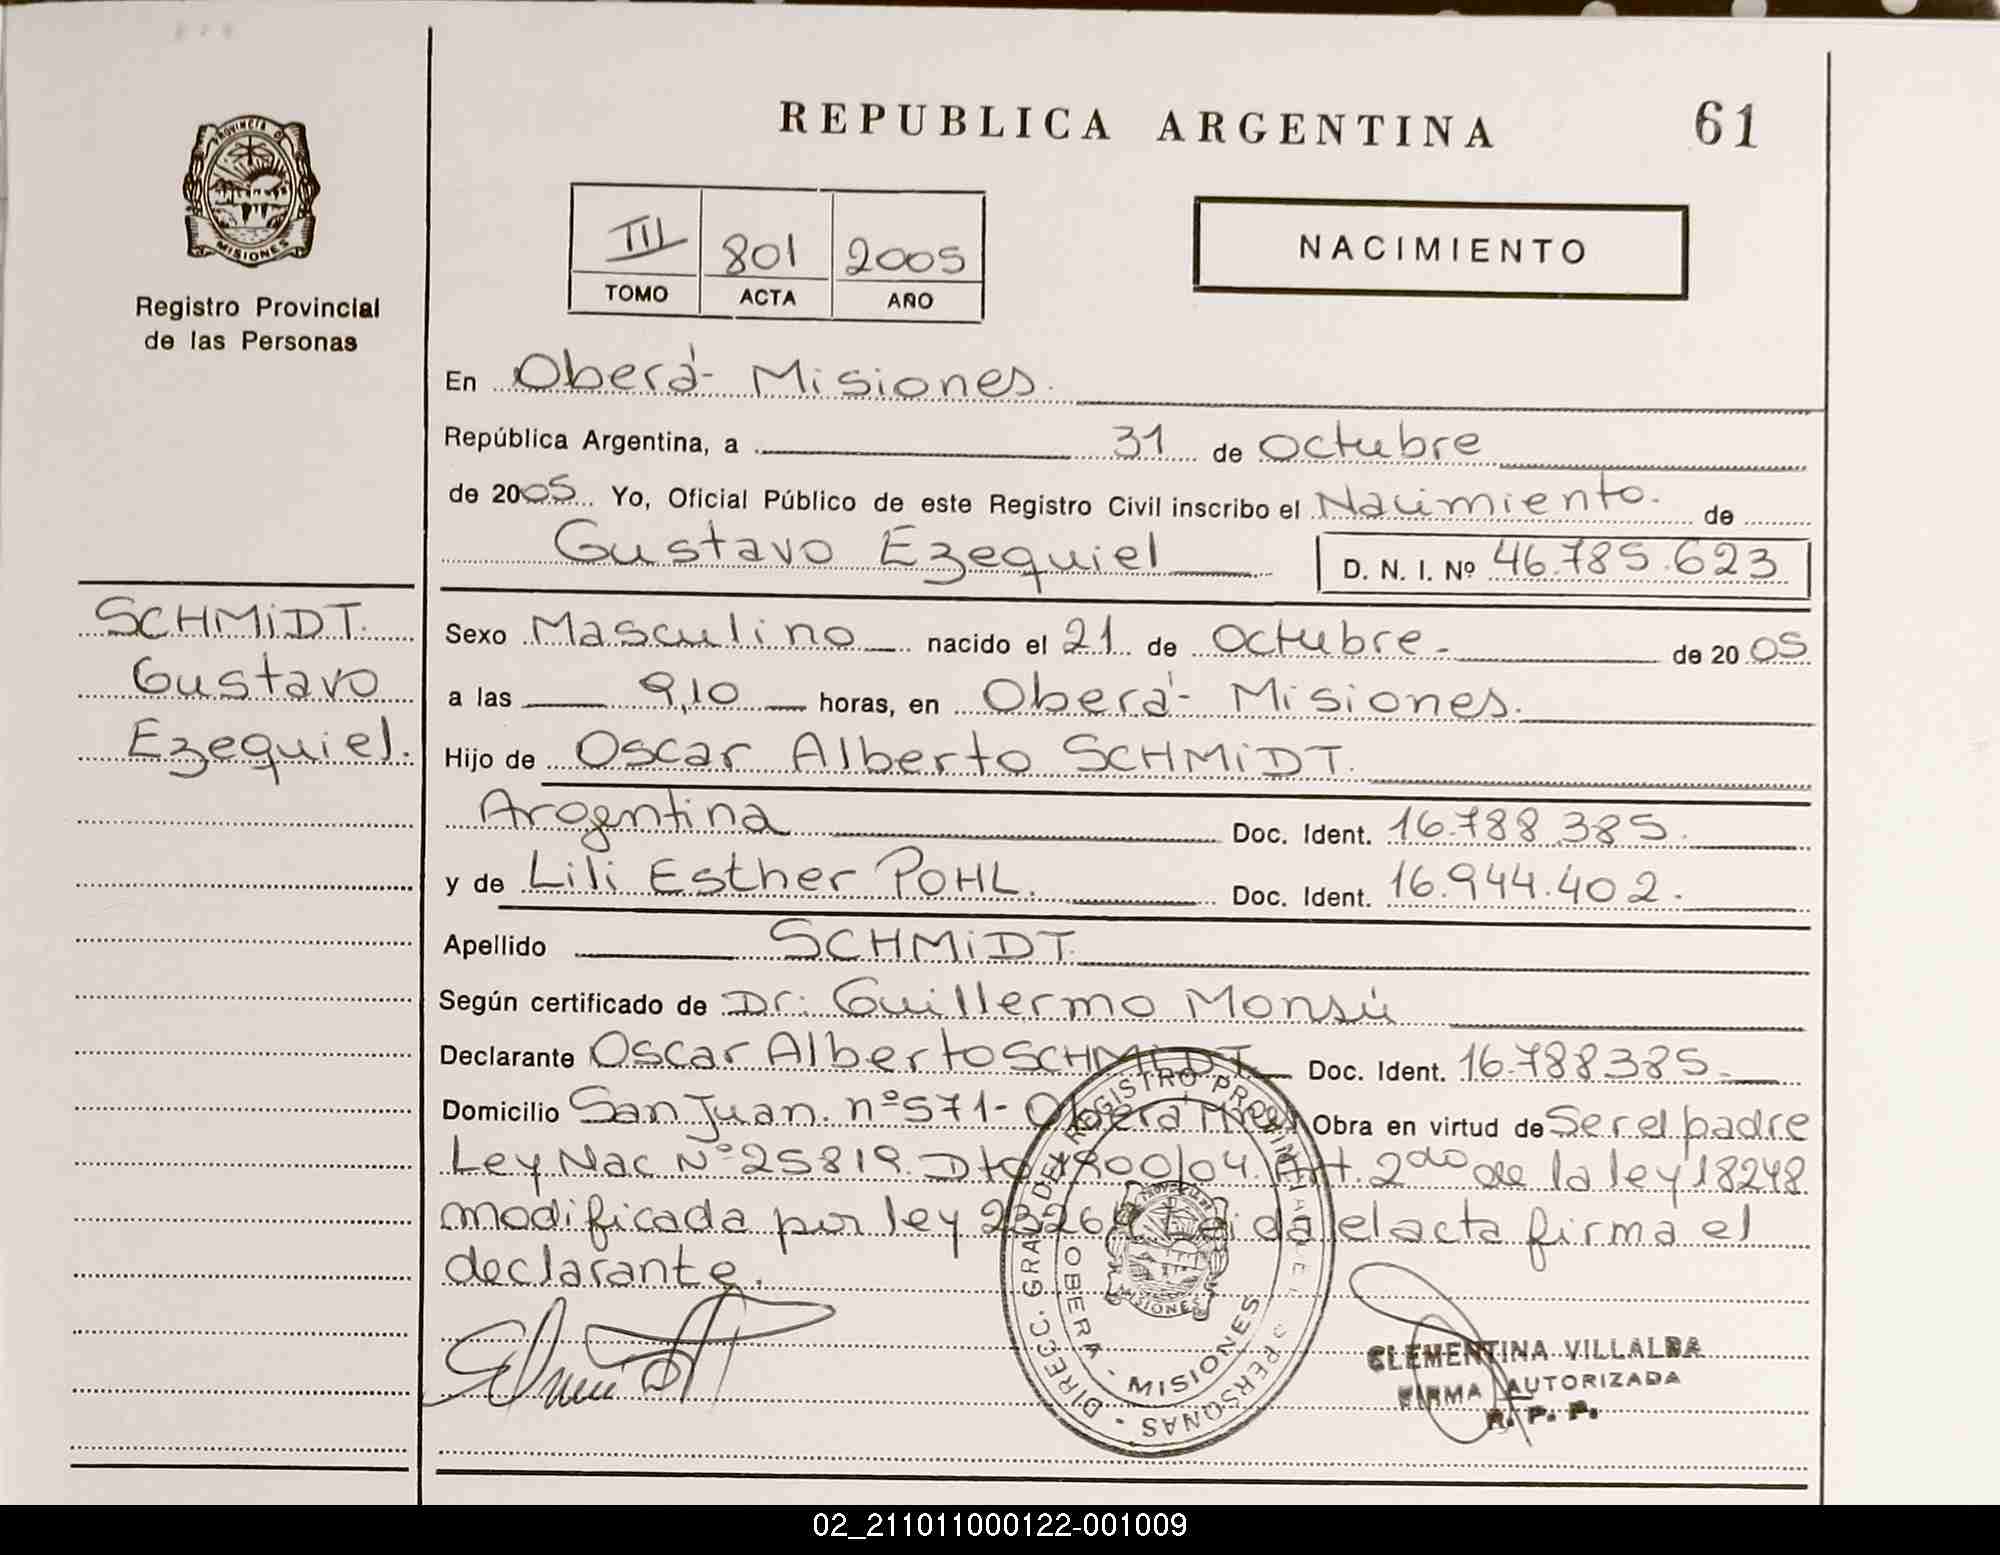 REPUBLICA ARGENTINA 61
PROVINCIA DE
MISIONES
Registro Provincial
de las Personas
III 801 2005
TOMO ACTA AÑO
NACIMIENTO
En Oberá - Misiones.
República Argentina, a 31 de Octubre
de 2005 Yo, Oficial Público de este Registro Civil inscribo el Nacimiento. de
Gustavo Ezequiel D. N. I. Nº 46.785.623
SCHMiDT.
Gustavo
Ezequiel.
Sexo Masculino nacido el 21 de Octubre. de 2005
a las 9,10 horas, en Oberá - Misiones.
Hijo de Oscar Alberto SCHMiDT.
Argentina Doc. Ident. 16.788.385.
y de Lili Esther POHL. Doc. Ident. 16.944.402.
Apellido SCHMiDT.
Según certificado de Dr. Guillermo Monsú
Declarante Oscar Alberto SCHMIDT. Doc. Ident. 16.788385.
Domicilio San Juan. nº 571 - Oberá Mnes Obra en virtud de Ser el padre
Ley Nac Nº 25819. Dto 1900/04. Art. 2do de la ley 18248
modificada por ley 23264. Leida el acta firma el
declarante.
DIRECC. GRAL DEL REGISTRO PROVINCIAL DE PERSONAS
OBERA - MISIONES
MISIONES
CLEMENTINA VILLALBA
FIRMA AUTORIZADA
R. P. P.
02_211011000122-001009